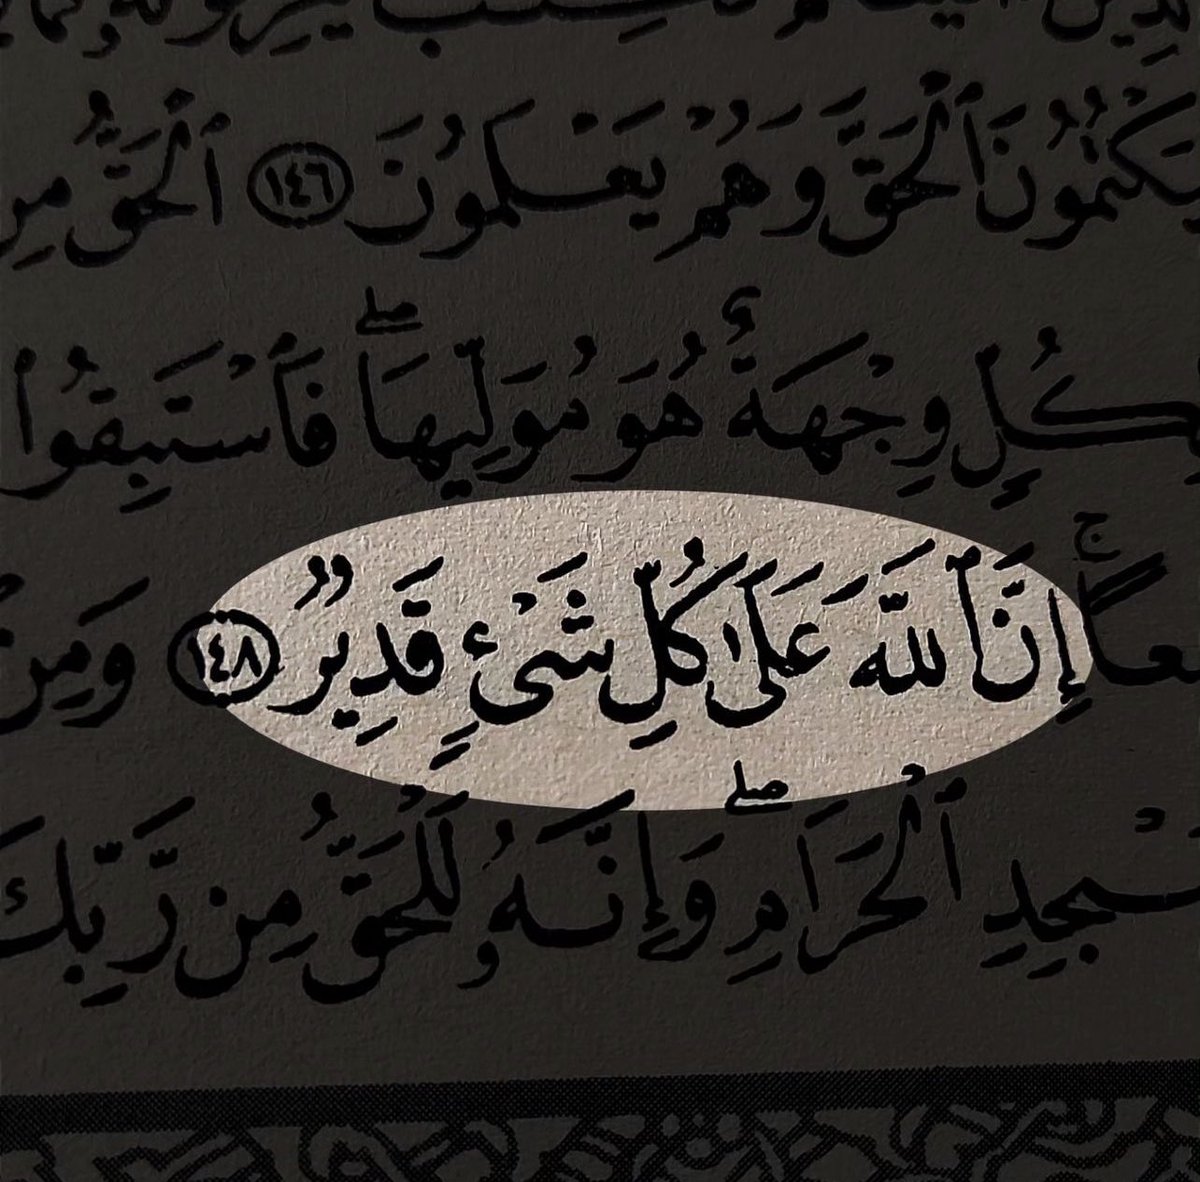 يَكْتُمُونَ ٱلْحَقَّ وَهُمْ يَعْلَمُونَ ١٤٦ ٱلْحَقُّ مِن
لِكُلٍّ وِجْهَةٌ هُوَ مُوَلِّيهَا ۖ فَٱسْتَبِقُوا۟
إِنَّ ٱللَّهَ عَلَىٰ كُلِّ شَىْءٍ قَدِيرٌ ١٤٨ وَمِنْ
ٱلْحَرَامِ ۖ وَإِنَّهُۥ لَلْحَقُّ مِن رَّبِّكَ